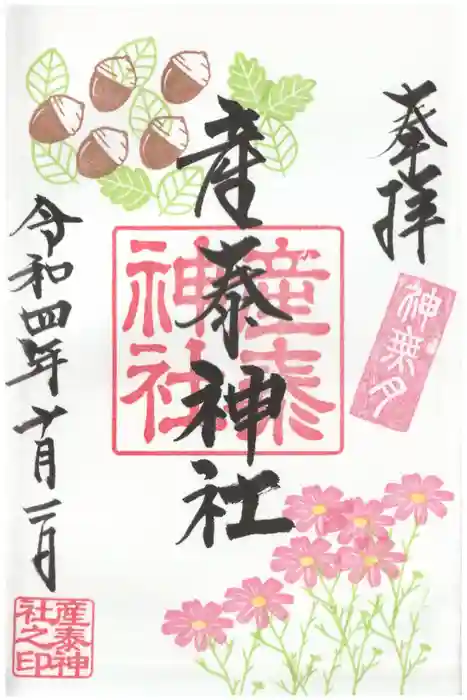 奉拝
神無月
産泰神社
産泰神社
令和四年十月二日
産泰神社之印